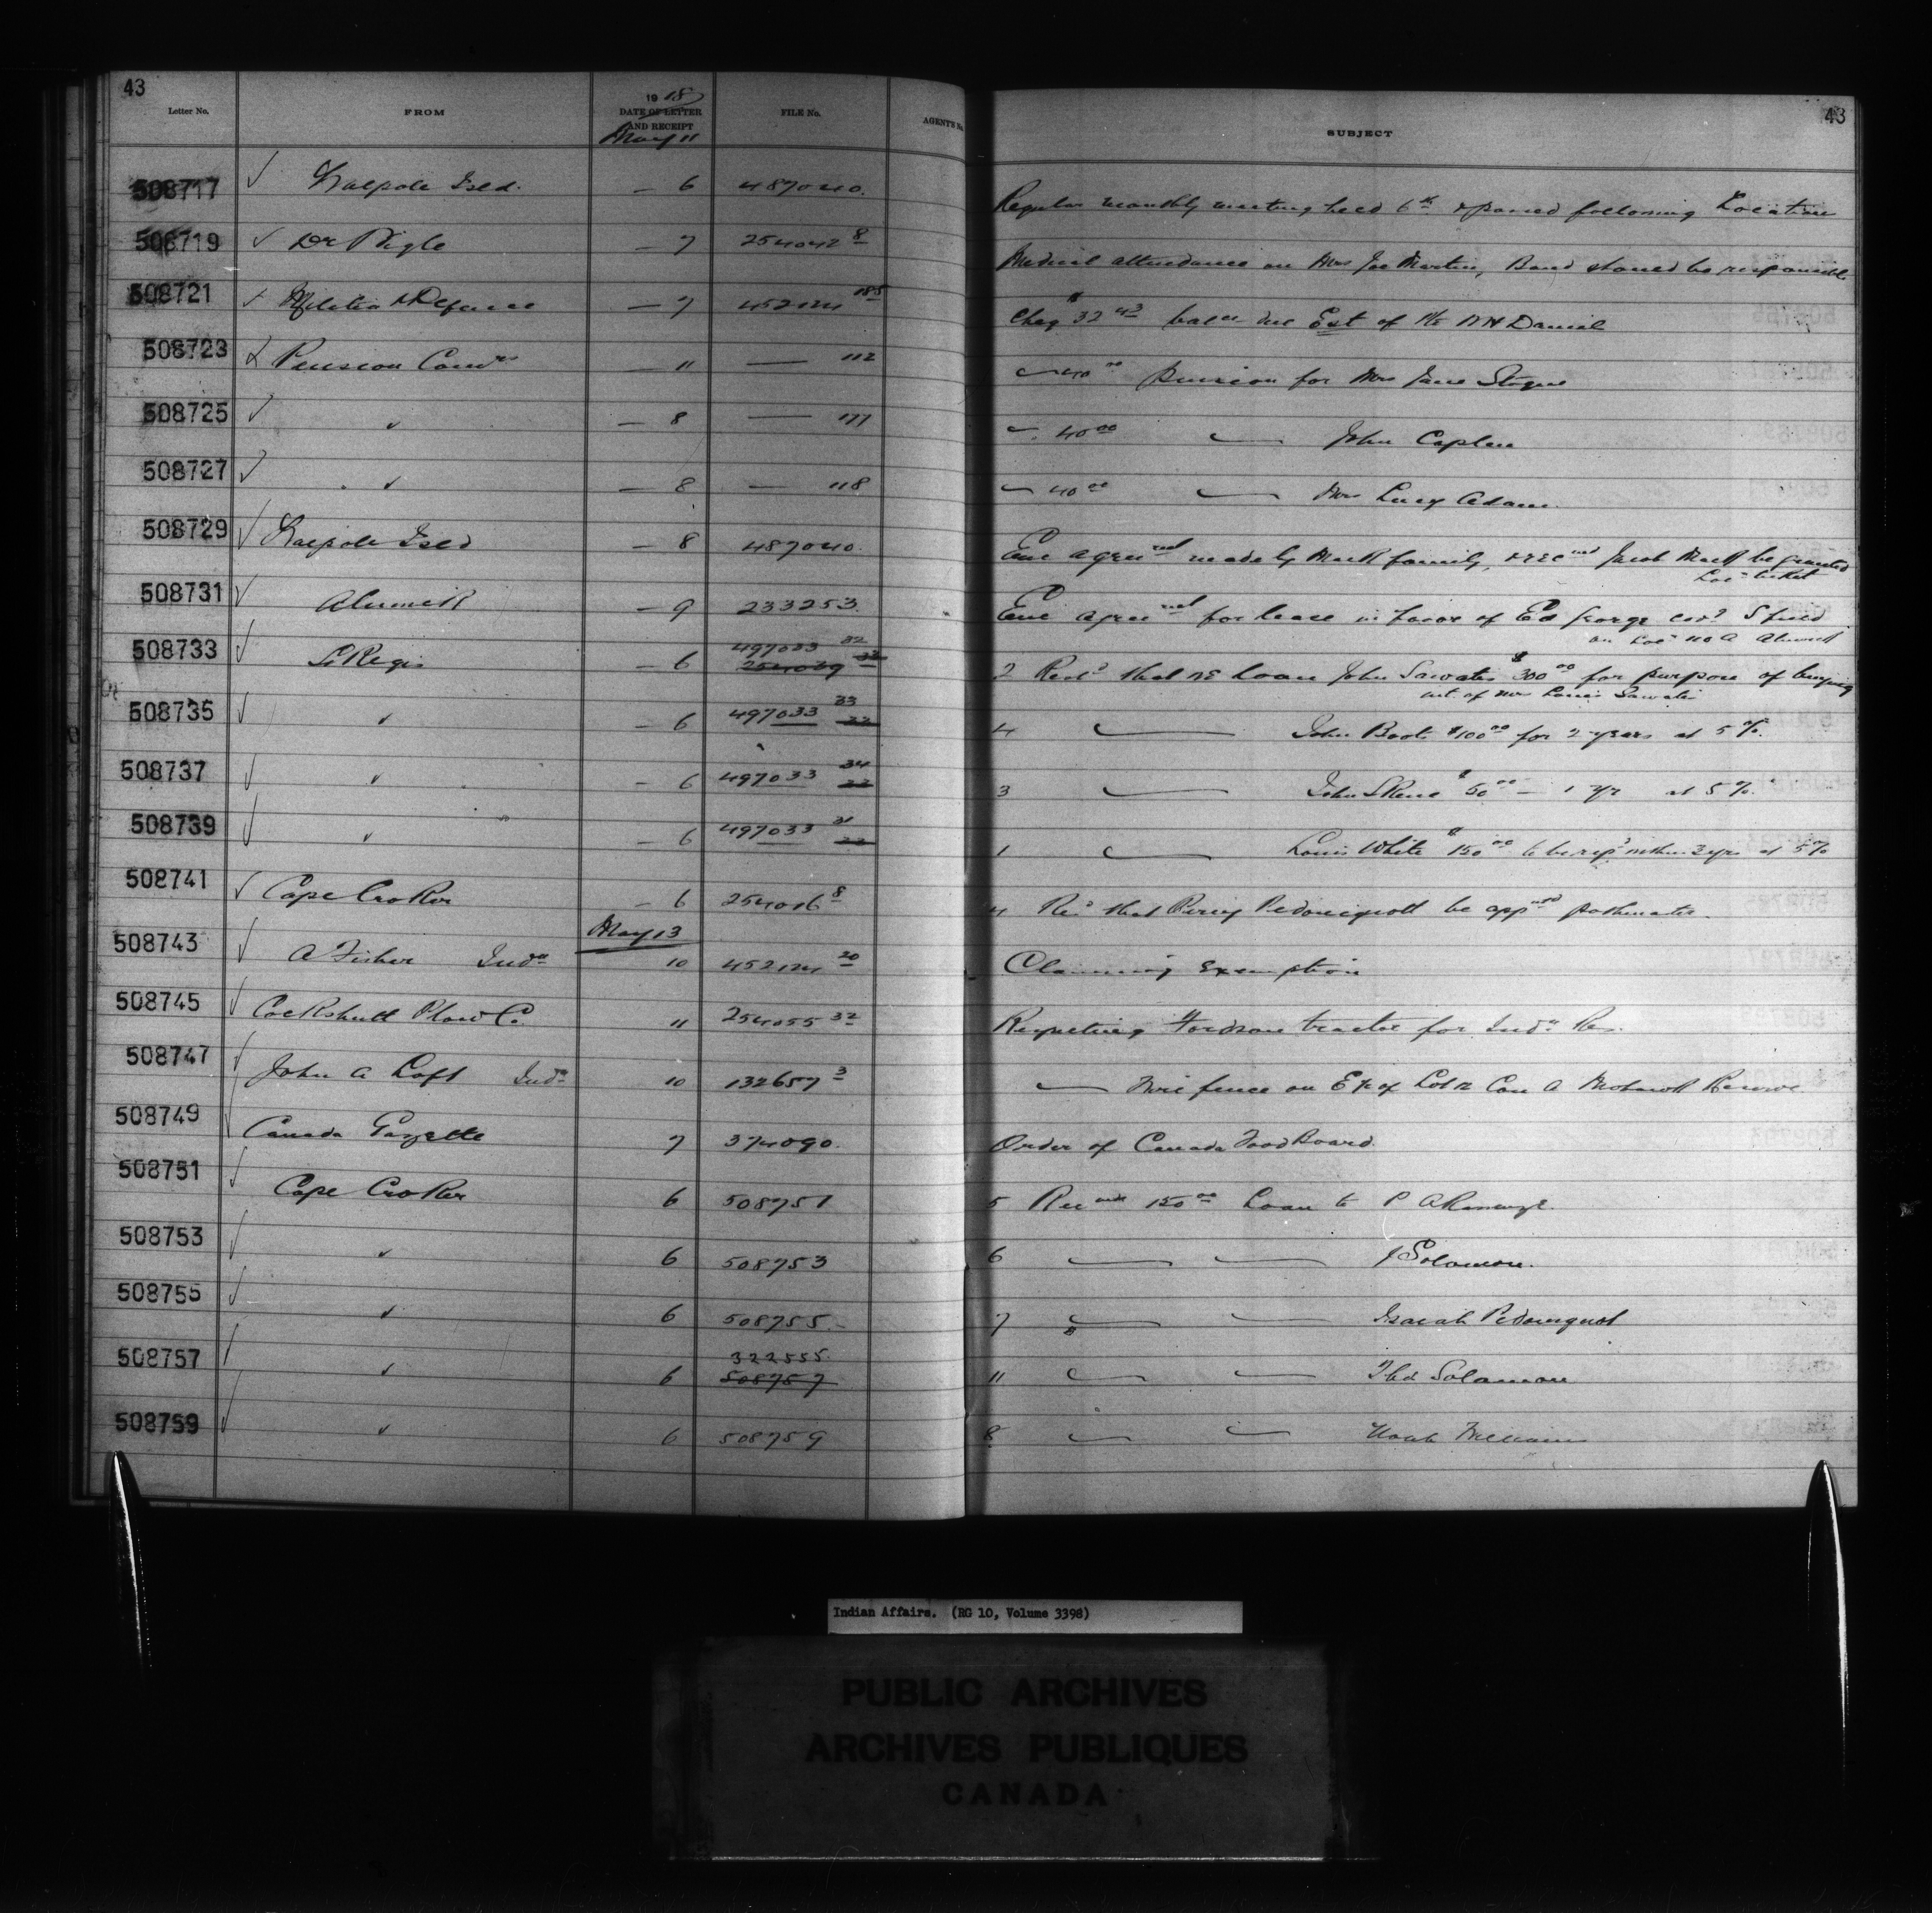 43
Letter No. FROM 1918 DATE OF LETTER AND RECEIPT FILE No. AGENT'S No. SUBJECT 43
May 11
508717 Walpole Isld. — 6 487040. Regular monthly meeting held 6th & passed following Location
508719 Dr Pigle — 7 254042 8 Medical attendance on Mrs Joe Martin, Band should be responsible
508721 Militia & Defence — 7 452124 185 Cheq $32 43 balce due Est of Pte W H Daniel
508723 Pension Comrs — 11 — 112 " 40 00 pension for Mrs Jane
508725 " — 8 — 177 " 40 00 " John Caplin
508727 " — 8 — 118 " 40 00 " Mrs Lucy Adam
508729 Walpole Isld — 8 487040. Enc agreement made by Mark family, & recmd Jacob Mark be granted
Loc ticket
508731 Alnwick — 9 233253. Enc agreement for lease in favor of Ed George
Alnwick
508733 St Regis — 6 497033 32 254039 33 2 Resn that we loan John Sawatis $300 00 for purpose of buying
int of Mrs Louis Sawatis
508735 " — 6 497033 33 4 " John Boots $100 00 for 2 years at 5%.
508737 " — 6 497033 34 3 " John $50 00 — 1 yr at 5%.
508739 " — 6 497033 31 1 " Louis White $150 00 to be repd within 3 yrs at 5%
508741 Cape Croker — 6 254016 8 4 Resn that Percy Pedoniquott be appntd pathmaster.
May 13
508743 A Fisher Indn 10 452124 20 Claiming exemption
508745 Cockshutt Plow Co. 11 254055 32 Respecting Fordson tractor for Indn Res.
508747 John A Loft Indn 10 132657 3 " Wire fence on E ½ of Lot 12 Con A Mohawk Reserve
508749 Canada Gazette 7 374090. Order of Canada Food Board.
508751 Cape Croker 6 508751 5 Recmd 150 00 Loan to P Akiwenzi.
508753 " 6 508753 6 " " J Solomon.
508755 " 6 508755. 7 " " Isaiah Pedoniquot
508757 " 6 322555. 508757 11 " " Thos Solomon
508759 " 6 508759 8 " " Noah Williams
Indian Affairs. (RG 10, Volume 3398)
PUBLIC ARCHIVES
ARCHIVES PUBLIQUES
CANADA